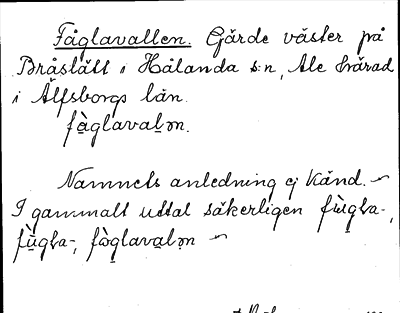 Fåglavallen. Gärde väster på
Bråslätt i Hålanda s:n, Ale härad
i Älfsborgs län.
få̀glavaḷən.
Namnets anledning ej känd. ~
I gammalt uttal säkerligen
fùgla-, få̀glavaḷən ~